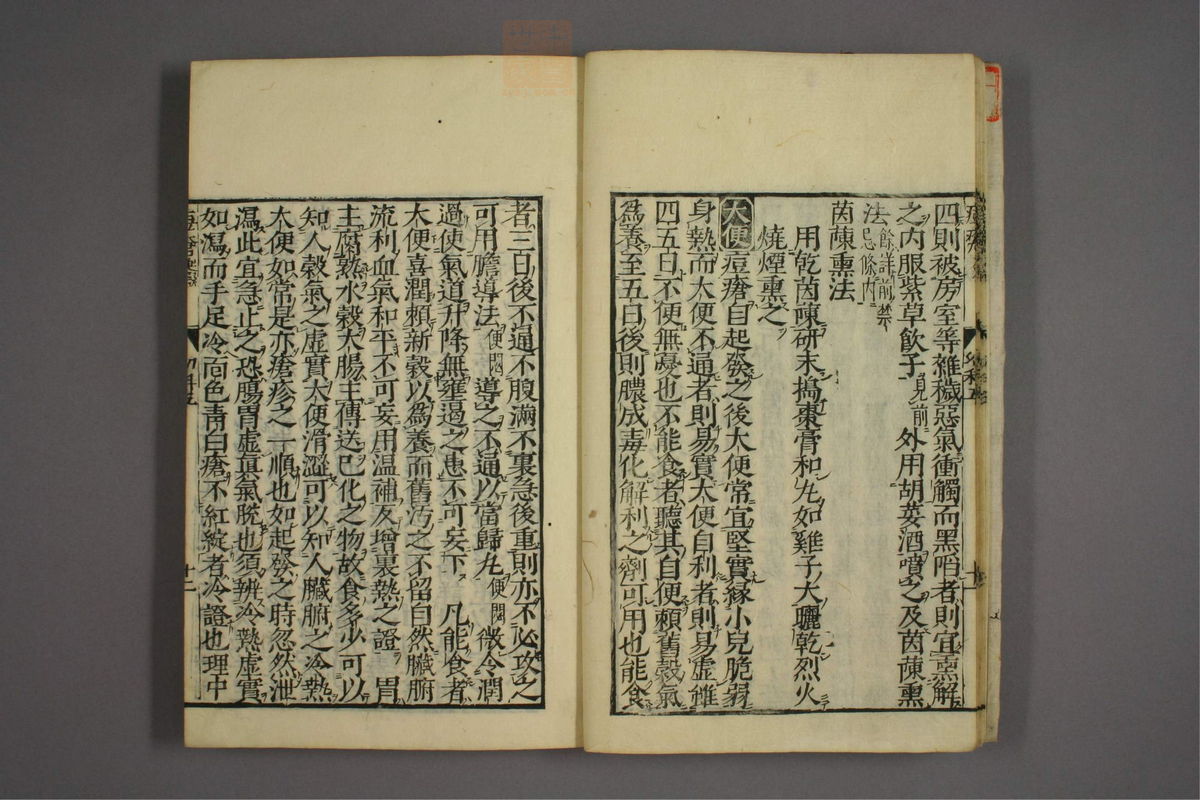 四則被房室等雜穢惡氣衝觸而黑陷者則宜熏解
之内服紫草飲子見前外用胡荽酒噴之及茵蔯熏
法餘詳前禁忌條内
茵蔯熏法
用乾茵蔯研末搗棗膏和丸如雞子大曬乾烈火
燒煙熏之
大便痘瘡自起發之後大便常宜堅實縁小兒脆弱
身熱而大便不通者則易實大便自利者則易虛雖
四五日不便無憂也不能食者聽其自便賴舊穀氣
爲養至五日後則膿成毒化解利之劑可用也能食
者三日後不通不腹滿不裏急後重則亦不必攻之
可用膽導法便閟導之不通以當歸丸便閟微令潤
過使氣道升降無壅遏之患不可妄下 凡能食者
大便喜潤賴新穀以爲養而舊汚之不留自然臟腑
流利血氣和平不可妄用温補反增裏熱之證 胃
主腐熟水穀大腸主傳送已化之物故食多少可以
知人穀氣之虛實大便滑澀可以知人臟腑之冷熱
大便如常是亦瘡疹之一順也如起發之時忽然泄
瀉此宜急止之恐腸胃虛眞氣脫也須辨冷熱虛實
如瀉而手足冷面色青白瘡不紅綻者冷證也理中